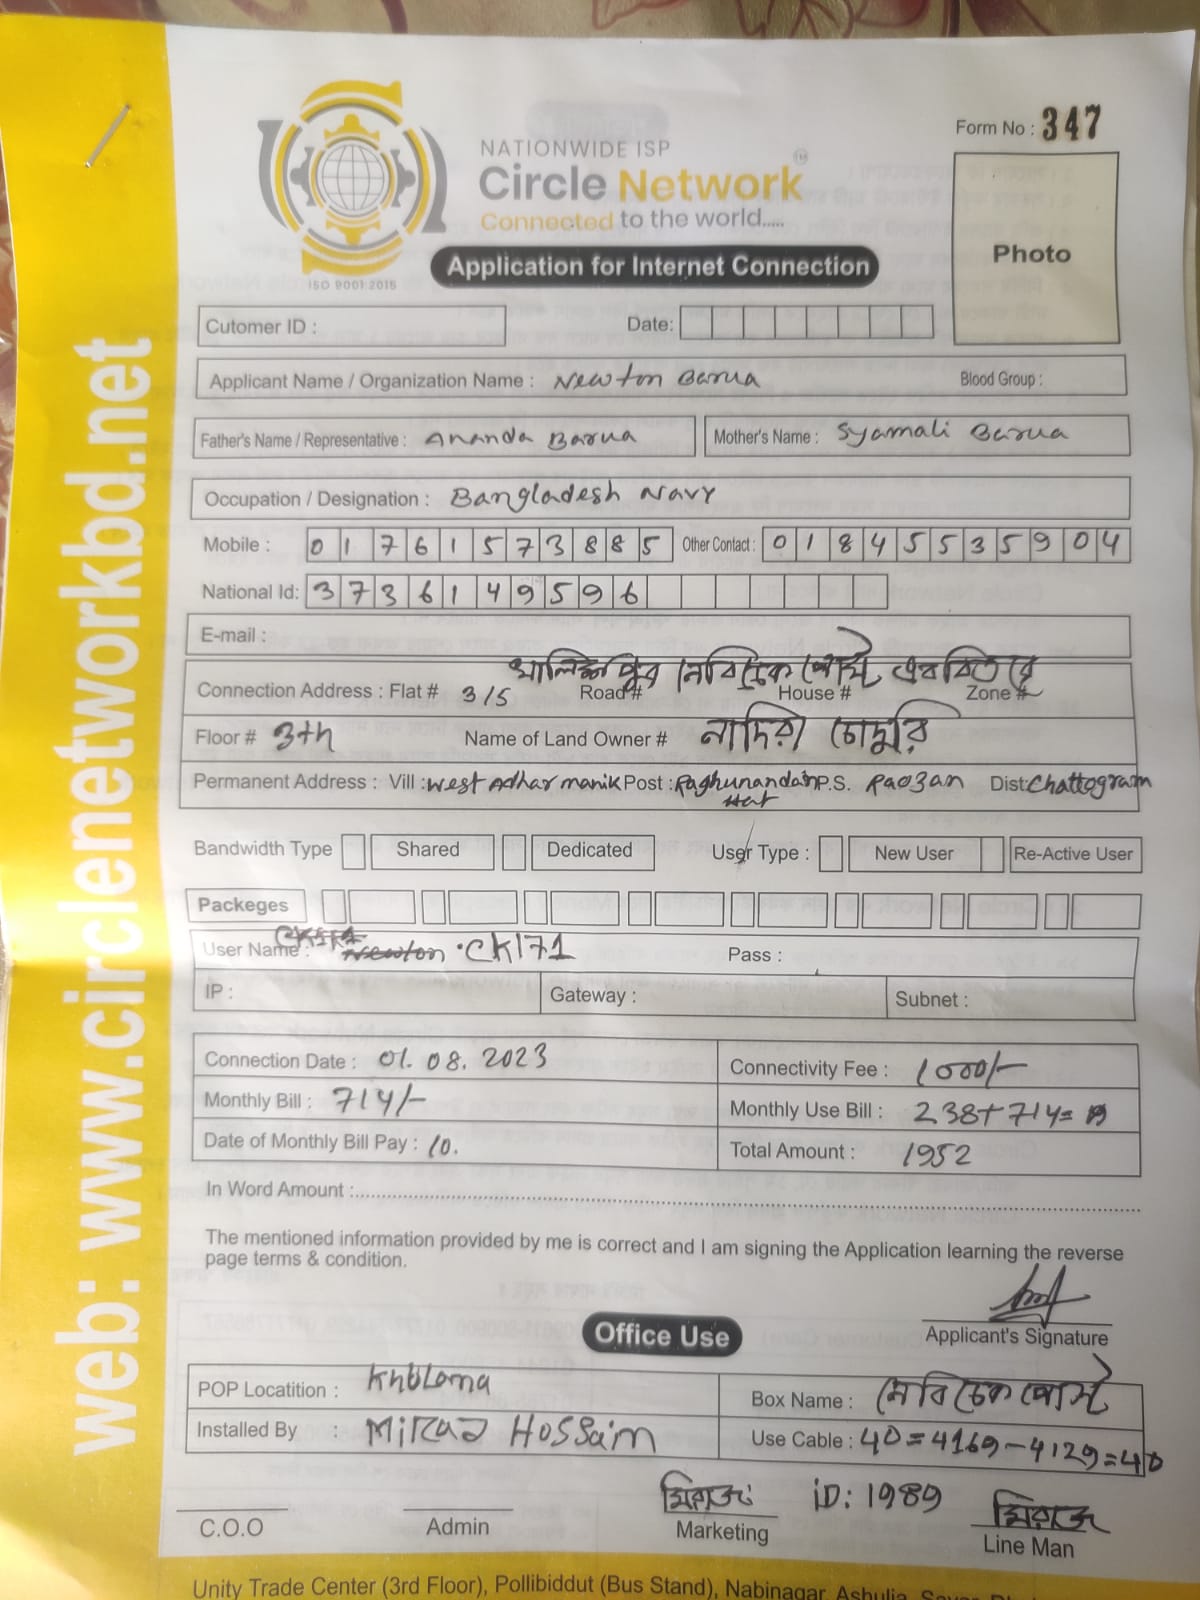 web: www.circlenetworkbd.net
Form No : 347
NATIONWIDE ISP
Circle Network TM
Connected to the world.....
ISO 9001:2015
Application for Internet Connection
Photo
Cutomer ID : Date:
Applicant Name / Organization Name : Newton Barua Blood Group :
Father's Name / Representative : Ananda Barua Mother's Name : Syamali Barua
Occupation / Designation : Bangladesh Navy
Mobile : 01761573885 Other Contact : 01845535904
National Id: 3736149596
E-mail :
Connection Address : Flat # 3/5 Road # House # Zone #
Floor # 3th Name of Land Owner # নাদিরা চৌধুরি
Permanent Address : Vill : West Adhar manik Post : Raghunandan Hat P.S. Raozan Dist: Chattogram
Bandwidth Type Shared Dedicated User Type : New User Re-Active User
Packeges
User Name : Newton .CK171 Pass :
IP : Gateway : Subnet :
Connection Date : 01. 08. 2023 Connectivity Fee : 1000/-
Monthly Bill : 714/- Monthly Use Bill : 238+714=
Date of Monthly Bill Pay : 10. Total Amount : 1952
In Word Amount :
The mentioned information provided by me is correct and I am signing the Application learning the reverse
page terms & condition.
Applicant's Signature
Office Use
POP Locatition : Box Name :
Installed By : Miraj Hossain Use Cable : 40=4169-4129=40
মিরাজ ID: 1989 মিরাজ
C.O.O Admin Marketing Line Man
Unity Trade Center (3rd Floor), Pollibiddut (Bus Stand), Nabinagar, Ashulia,